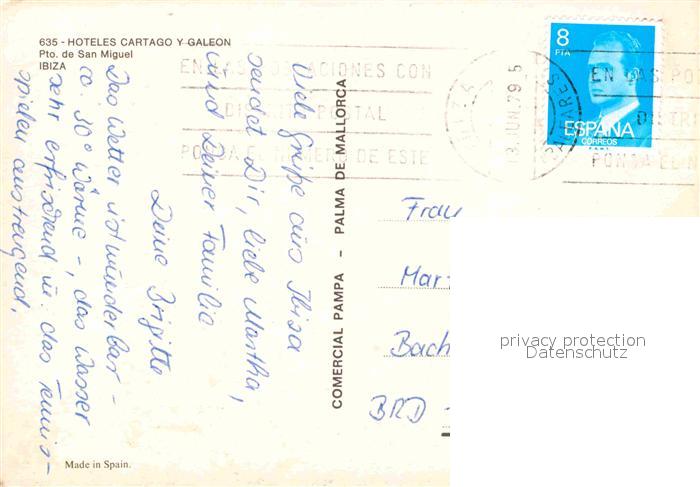 635 - HOTELES CARTAGO Y GALEON
Pto. de San Miguel
IBIZA
Viele Grüße aus Ibiza
sendet Dir, liebe Martha,
und Deiner Familie
Deine Brigitte
Das Wetter ist wunderbar -
ca. 30° Wärme -, das Wasser
sehr erfrischend u. das Tennis-
spielen anstrengend.
Made in Spain.
COMERCIAL PAMPA - PALMA DE MALLORCA
8
PTA
ESPAÑA
CORREOS
F.N.M.T.
JUN. 79
BALEARES
CIONES CON
DISTRITO POSTAL
PONGA EL NUMERO DE ESTE
EN LAS PO
DISTRI
PONGA EL N
Frau
Mar
Bach
BRD -
privacy protection
Datenschutz